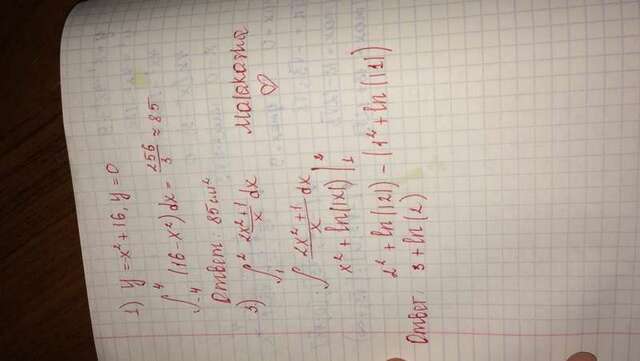 1) y = -x² + 16, y = 0
∫₋₄⁴ (16 - x²) dx = 256/3 ≈ 85
Ответ: 85 см²
3) ∫₁² (2x² + 1)/x dx
Malakasha ♡
∫ (2x² + 1)/x dx
x² + ln(|x|) |₁²
2² + ln(|2|) - (1² + ln(|1|)
Ответ: 3 + ln(2)